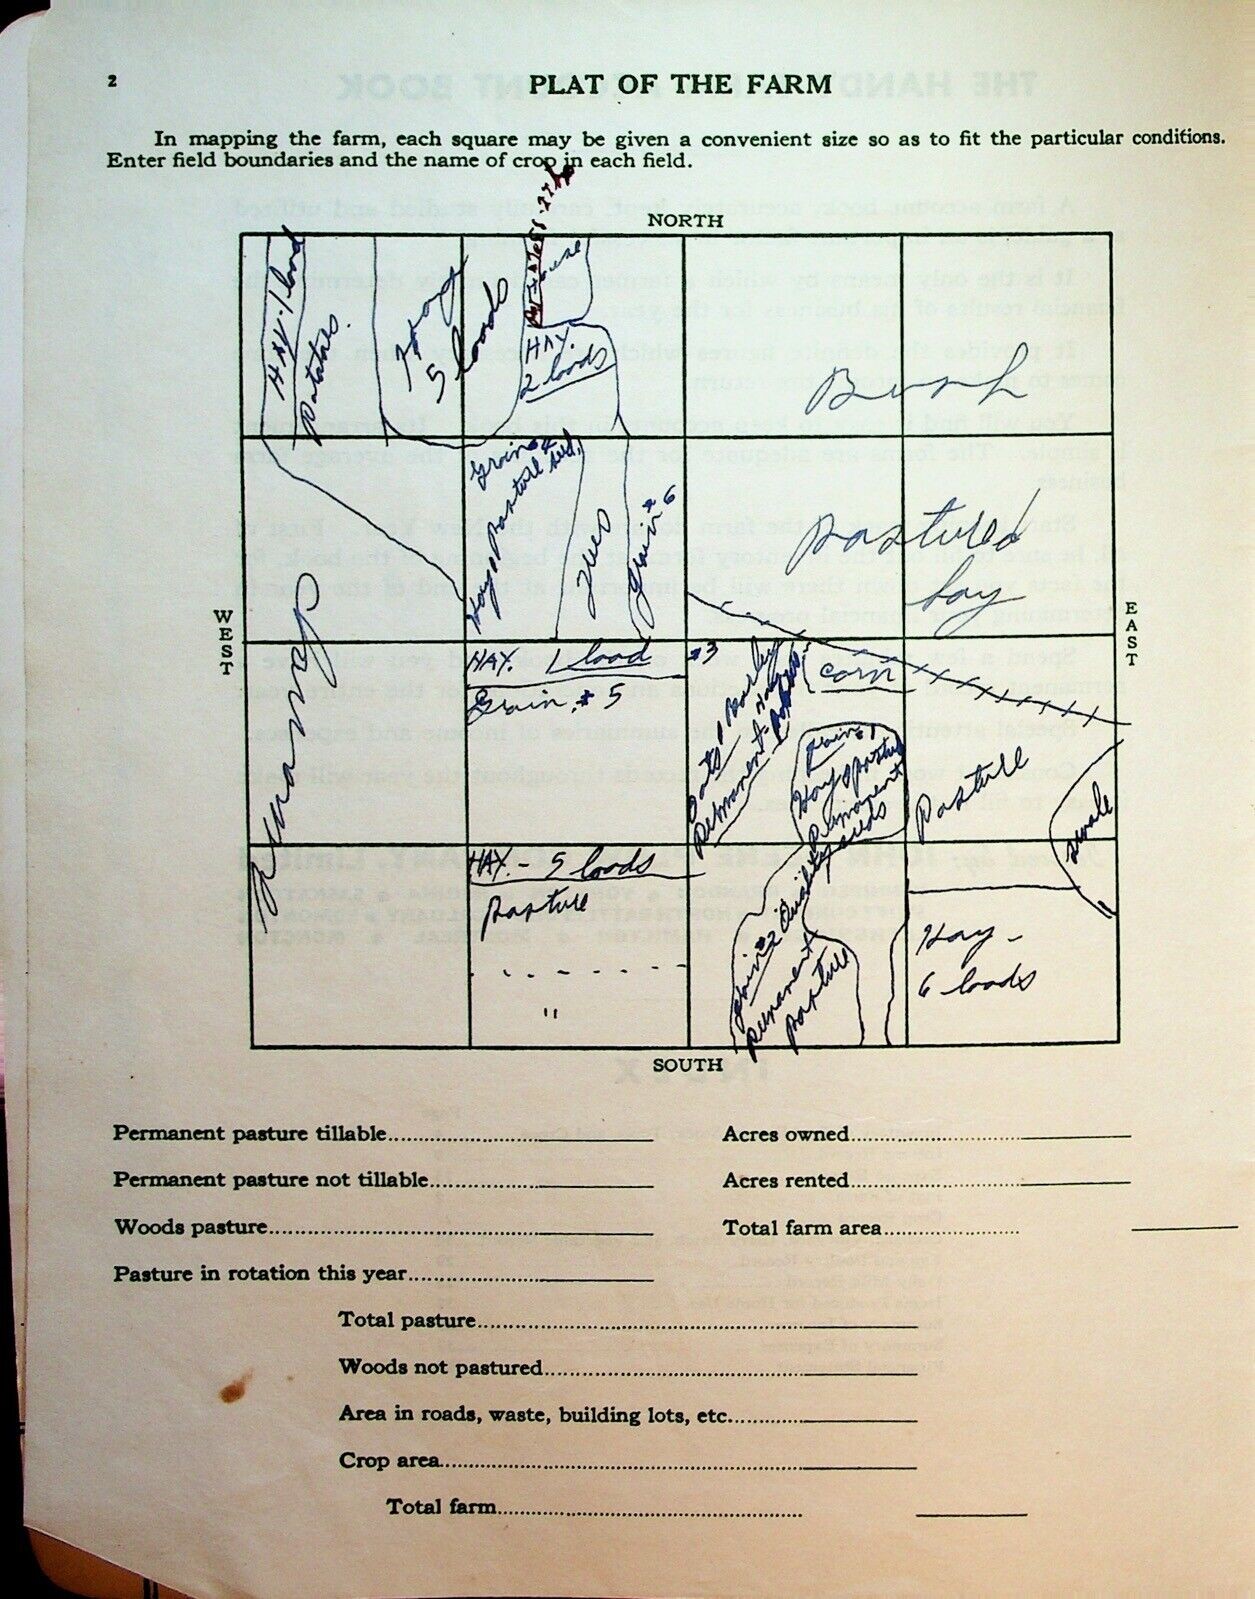 2
PLAT OF THE FARM
In mapping the farm, each square may be given a convenient size so as to fit the particular conditions.
Enter field boundaries and the name of crop in each field.
NORTH
HAY-1 load
Potatoes.
Hay
5 loads
House
HAY.
2 loads
Bush
Grain #4
Hay & Pasture seed.
Grain #6
Pastured
hay
WEST
EAST
Swamp
HAY. 1 load
Grain, #5
#3
Oats & Barley
Permanent pasture
corn
Grain #1
Hay & pasture
Permanent
seeds
Pasture
swale
HAY. - 5 loads
pasture
"
Grain #2
permanent
pasture
Hay -
6 loads
SOUTH
Permanent pasture tillable
Acres owned
Permanent pasture not tillable
Acres rented
Woods pasture
Total farm area
Pasture in rotation this year
Total pasture
Woods not pastured
Area in roads, waste, building lots, etc.
Crop area
Total farm